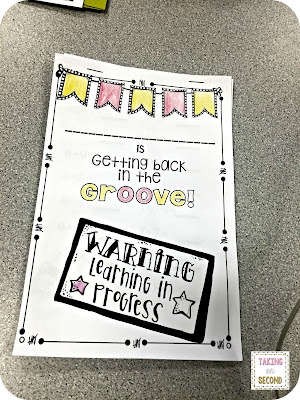 is
Getting back
in the
GROOVE!
WARNING
Learning in
Progress
TAKING
on
SECOND